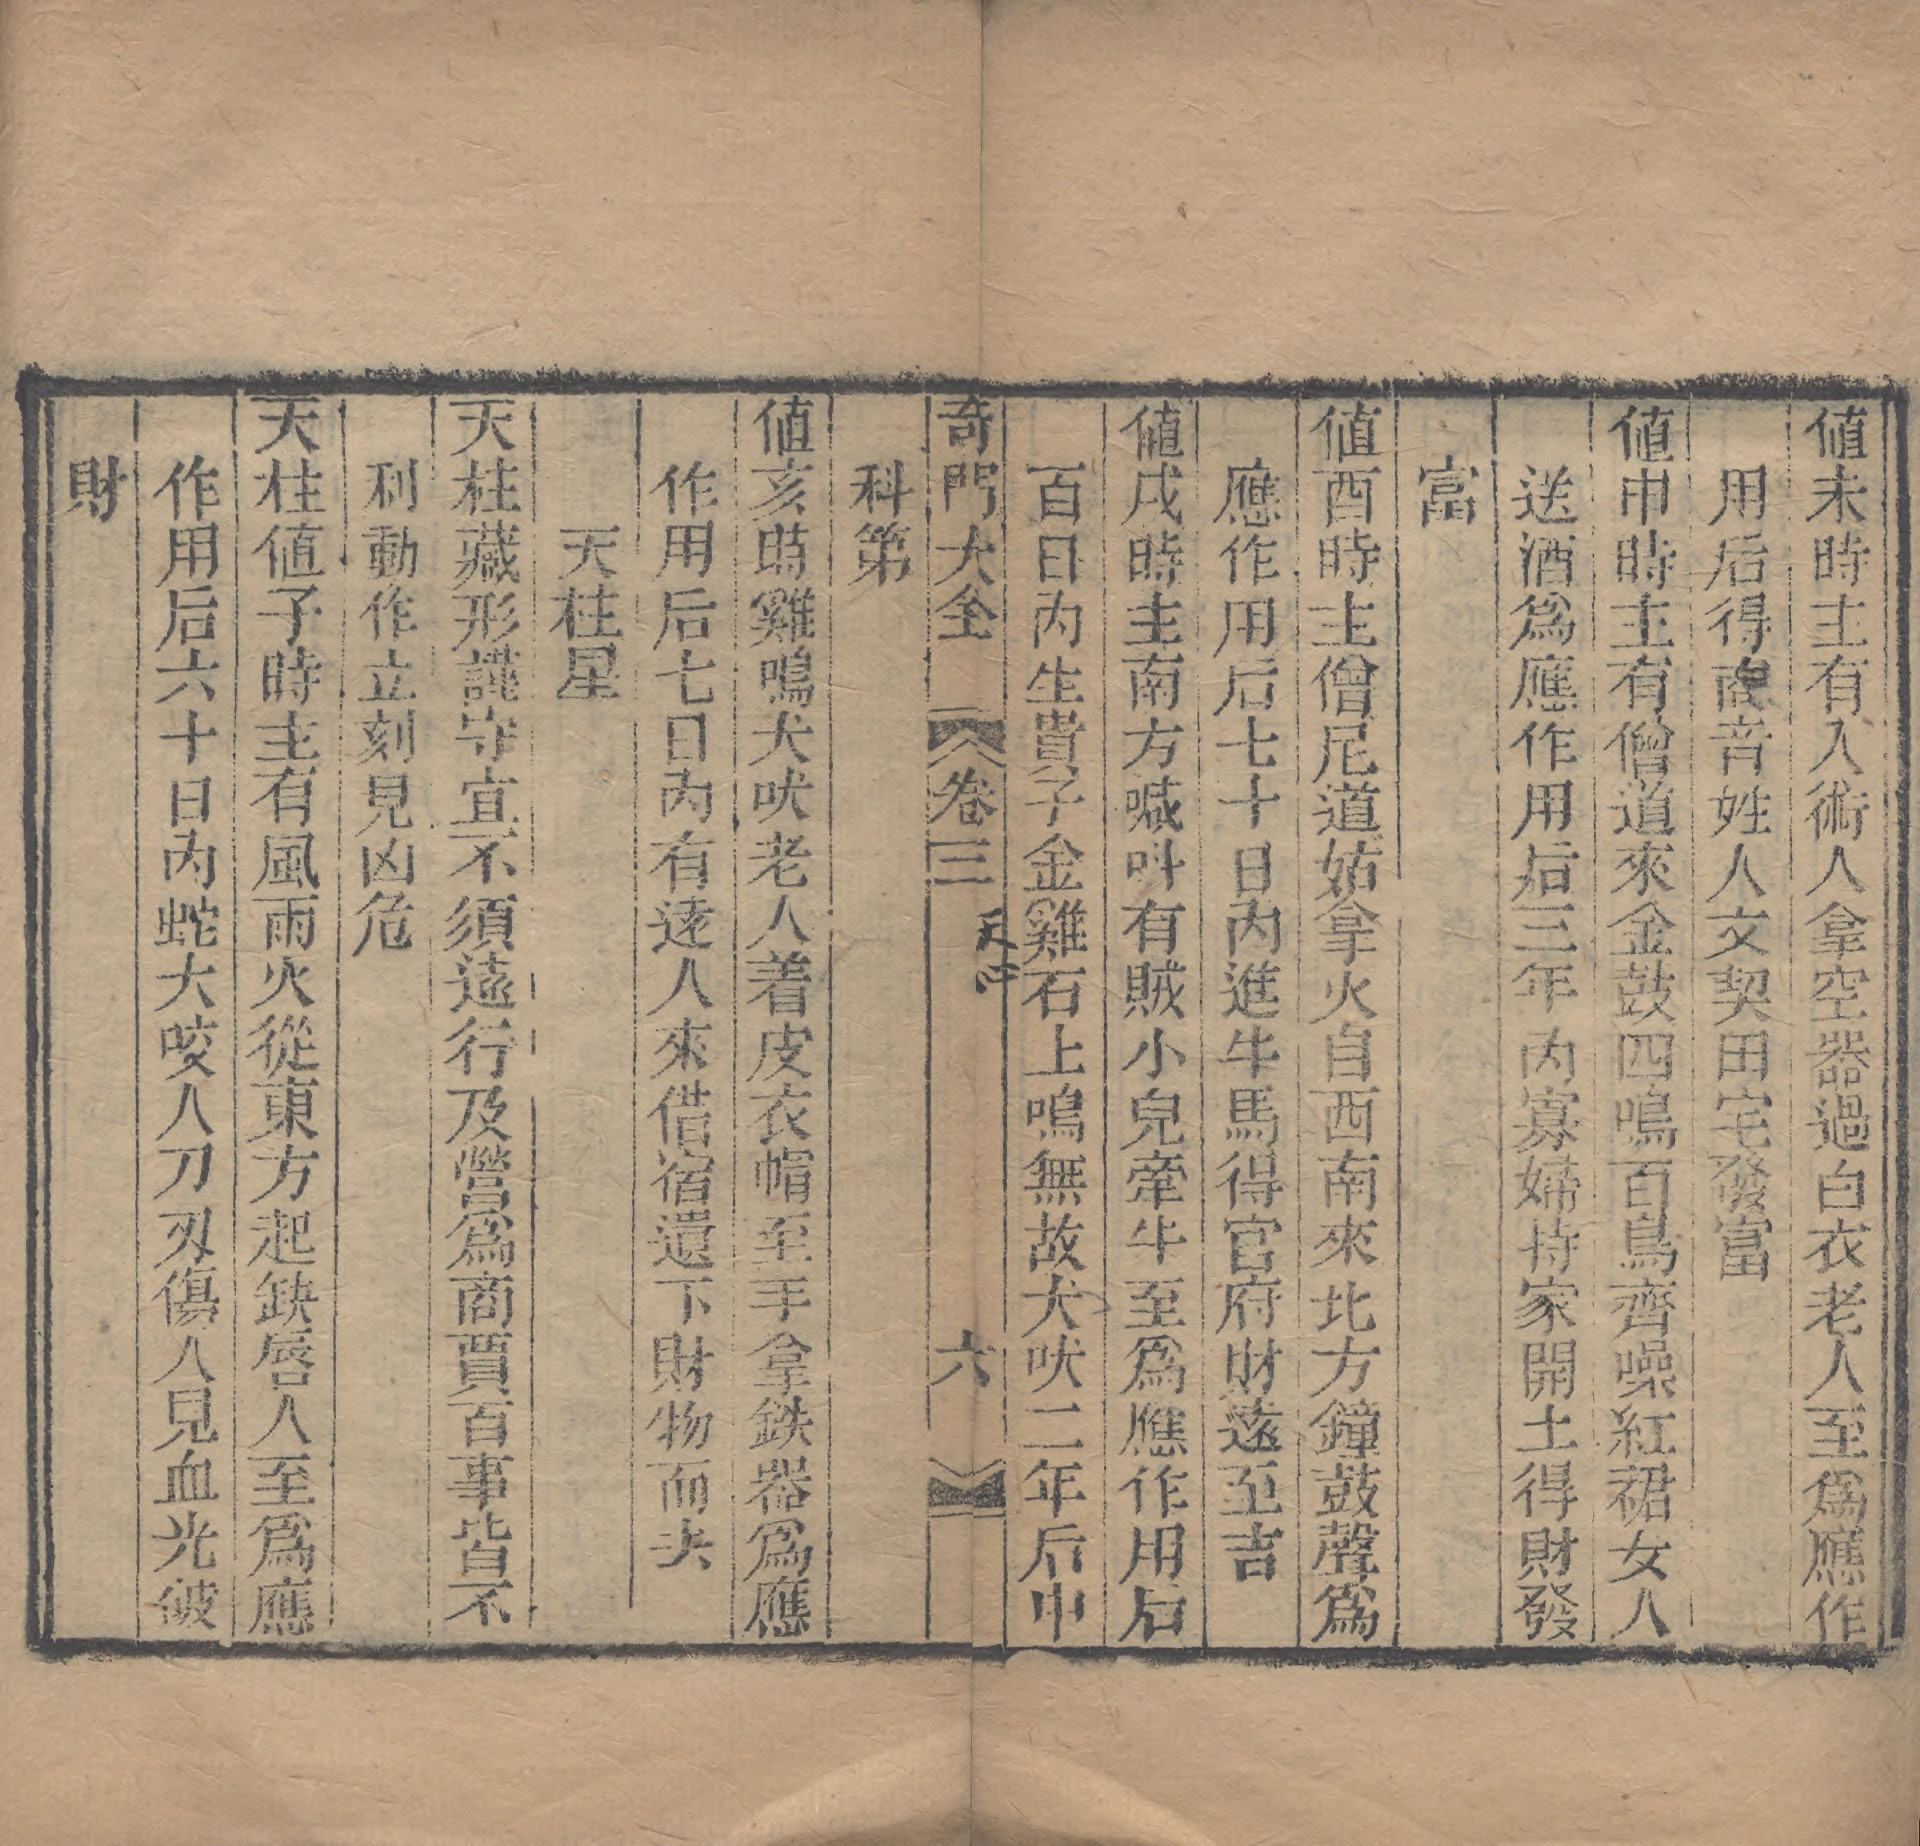 値未時主有人術人拿空器過白衣老人至爲應作
用后得商音姓人文契田宅發富
値申時主有僧道來金鼓四鳴百鳥齊噪紅裙女人
送酒爲應作用后三年內寡婦持家開土得財發
富
値酉時主僧尼道姑拿火自西南來北方鐘鼓聲爲
應作用后七十日內進牛馬得官府財遠至吉
値戌時主南方喊呌有賊小皃牽牛至爲應作用后
百日內生貴子金雞石上鳴無故犬吠二年后中
奇門大全
卷三
天心
六
科第
値亥時雞鳴犬吠老人着皮衣帽至手拿鉄器爲應
作用后七日內有遠人來借宿遺下財物而去
天柱星
天柱藏形謹守宜不須遠行及營爲商賈百事皆不
利動作立刻見凶危
天柱値子時主有風雨火從東方起缺唇人至爲應
作用后六十日內蛇犬咬人刀刃傷人見血光破
財